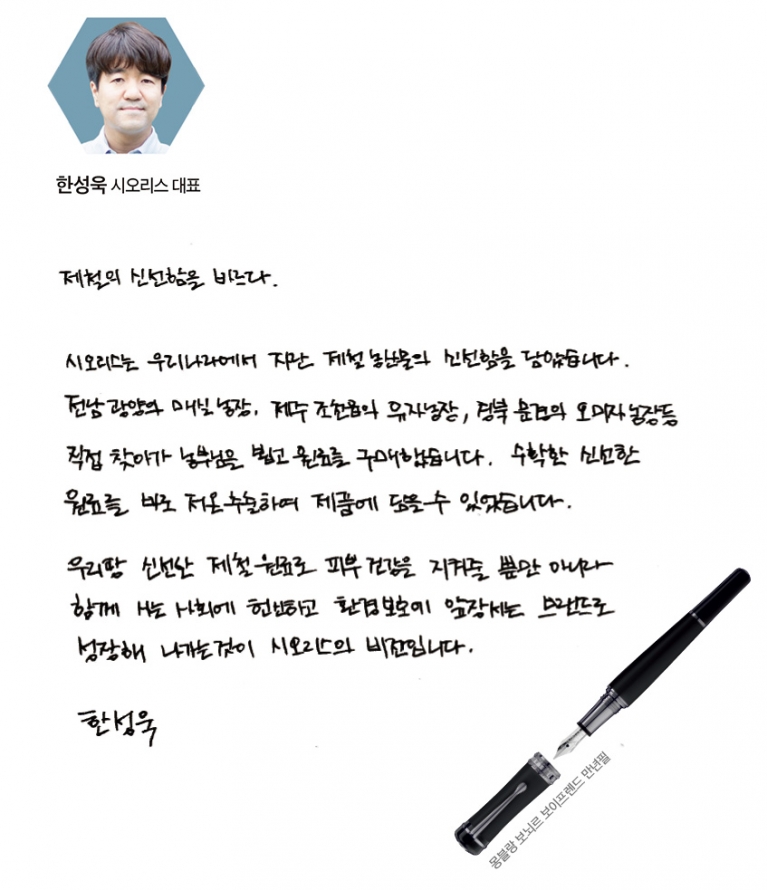 한성욱 시오리스 대표
제철의 신선함을 바르다.
시오리스는 우리나라에서 자란 제철 농산물의 신선함을 담았습니다.
전남 광양의 매실농장, 제주 조천읍의 유자농장, 경북 문경의 오미자농장등
직접 찾아가 농부님을 뵙고 원료를 구매했습니다. 수확한 신선한
원료를 바로 저온추출하여 제품에 담을 수 있었습니다.
우리땅 신선한 제철 원료로 피부 건강을 지켜줄 뿐만 아니라
함께 사는 사회에 헌신하고 환경보호에 앞장서는 브랜드로
성장해 나가는것이 시오리스의 비전입니다.
한성욱
몽블랑 보뇌르 보이프렌드 만년필